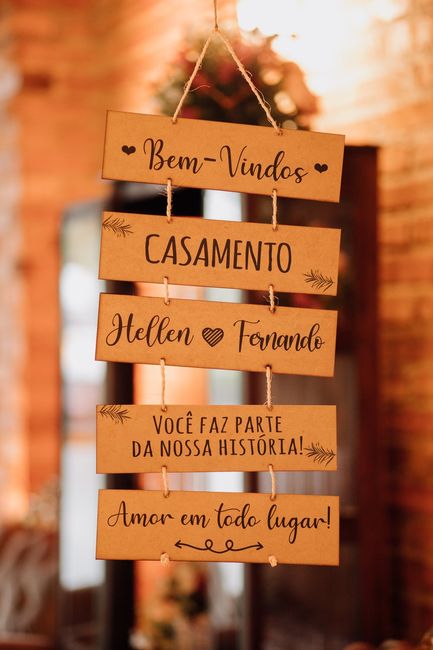 Bem-Vindos
CASAMENTO
Hellen Fernando
VOCÊ FAZ PARTE
DA NOSSA HISTÓRIA!
Amor em todo lugar!